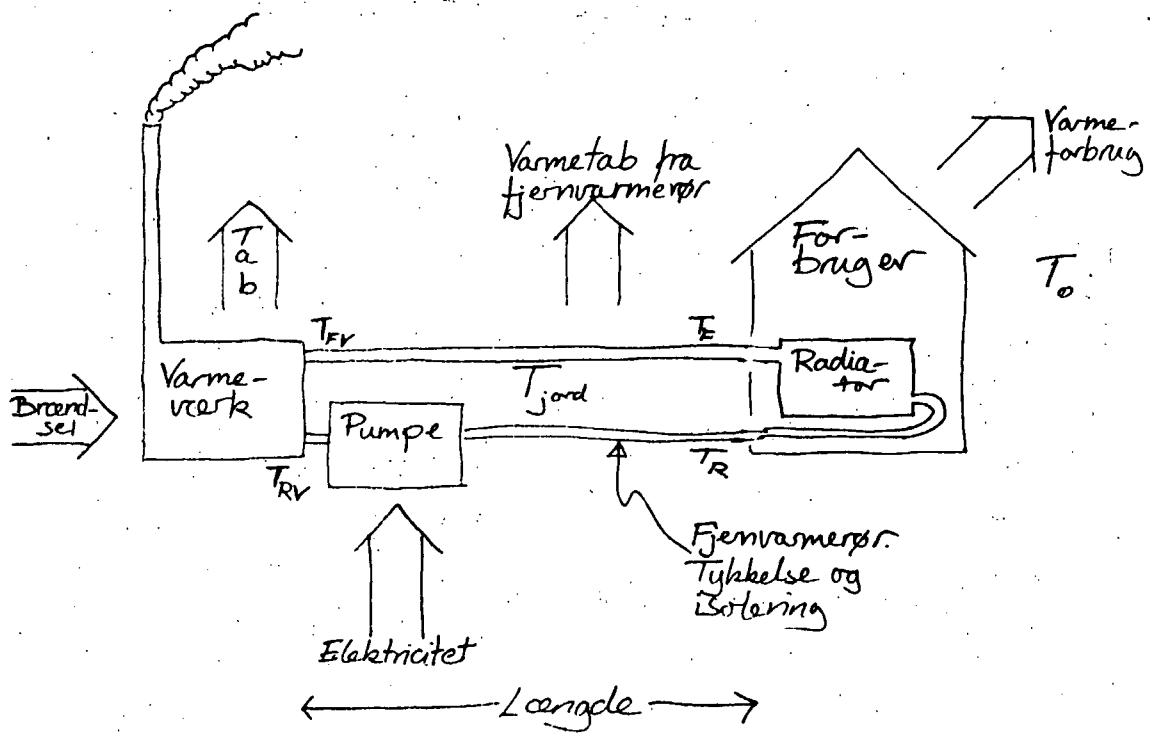 Varmetab fra
fjernvarmerør
Varme-
forbrug
T
a
b
For-
bruger
T₀
T_FV
T_E
Varme-
værk
T_jord
Radia-
tor
Brænd-
sel
Pumpe
T_RV
T_R
Fjernvarmerør.
Tykkelse og
isolering
Elektricitet
Længde